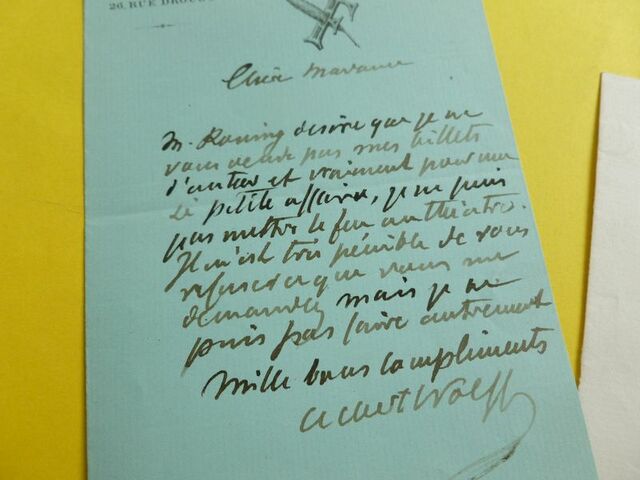 26, RUE DROUO
Chère Madame
M. Koning désire que je ne
vous vende pas mes billets
d'auteur et vraiment pour une
si petite affaire, je ne puis
pas mettre le feu au théâtre.
Il m'est très pénible de vous
refuser ce que vous me
demandez mais je ne
puis pas faire autrement
Mille bons compliments
Albert Wolff